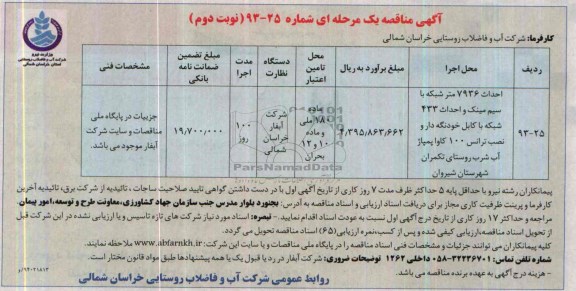 آگهی مناقصه یک مرحله ای شماره ۲۵-۹۳ (نوبت دوم)
کارفرما: شرکت آب و فاضلاب روستایی خراسان شمالی
وزارت نیرو
شرکت آب و فاضلاب روستایی
استان خراسان شمالی
ردیف
محل اجرا
مبلغ برآورد به ریال
محل تامین اعتبار
دستگاه نظارت
مدت اجرا
مبلغ تضمین ضمانت نامه بانکی
مشخصات فنی
۹۳-۲۵
احداث ۷۹۳۶ متر شبکه با سیم مینک و احداث ۴۳۳ شبکه با کابل خودنگه دار و نصب ترانس ۱۰۰ کاوا پمپاژ آب شرب روستای تکمران شهرستان شیروان
۴,۳۹۵,۸۶۳,۶۶۲
ماده ۱۸۰ ملی و ماده ۱۰ و ۱۲ بحران
شرکت آبفار خراسان شمالی
۱۰۰ روز
۱۹,۷۰۰,۰۰۰
جزییات در پایگاه ملی مناقصات و سایت شرکت آبفار موجود می باشد.
ParsNamadData
پیمانکاران رشته نیرو با حداقل پایه ۵ حداکثر ظرف مدت ۷ روز کاری از تاریخ آگهی اول با در دست داشتن گواهی تایید صلاحیت ساجات ، تائیدیه از شرکت برق، تائیدیه آخرین
کارفرما و پرینت ظرفیت کاری مجاز برای دریافت اسناد ارزیابی و اسناد مناقصه به آدرس: بجنورد بلوار مدرس جنب سازمان جهاد کشاورزی،معاونت طرح و توسعه،امور پیمان،
مراجعه و حداکثر ۱۷ روز کاری از تاریخ درج آگهی اول نسبت به عودت اسناد اقدام نمایید - تبصره: اسناد مورد نیاز شرکت های تازه تاسیس و یا ارزیابی نشده در این شرکت قبل
از تحویل اسناد مناقصه،ارزیابی کیفی شده و پس از کسب،نمره ارزیابی(۶۵) اسناد مناقصه تحویل می گردد.
کلیه پیمانکاران می توانند جزئیات و مشخصات فنی اسناد مناقصه را در پایگاه ملی مناقصات و یا سایت این شرکت:www.abfarnkh.ir ملاحظه نمایند.
شماره تلفن تماس: ۳۲۲۳۶۷۰۱-۰۵۸ داخلی ۱۲۶۲ توضیحات ضروری: شرکت آبفار در رد یا قبول یک یا همه پیشنهادها طبق مواد قانون مختار است.
- هزینه درج آگهی به عهده برنده مناقصه می باشد.
روابط عمومی شرکت آب و فاضلاب روستایی خراسان شمالی